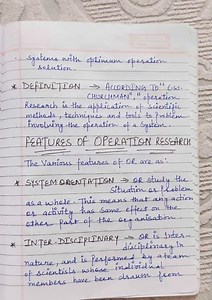 systems with optimum operation
solution.
* DEFINITION → ACCORDING TO "C.W.
CHURCHMAN", "operation
Research is the application of Scientific
methods, techniques and tools to Problem
Involving the operation of a System
FEATURES OF OPERATION RESEARCH
The Various features of OR are as:
* SYSTEM ORIENTATION → OR study the
Situation or Problem
as a whole. This means that any action
or activity has some effect on the
other part of the organisation
* INTER-DISCIPLINARY → OR is Inter-
disciplinary In
nature, and is performed by a team
of scientists whose individual
members have been drawn from